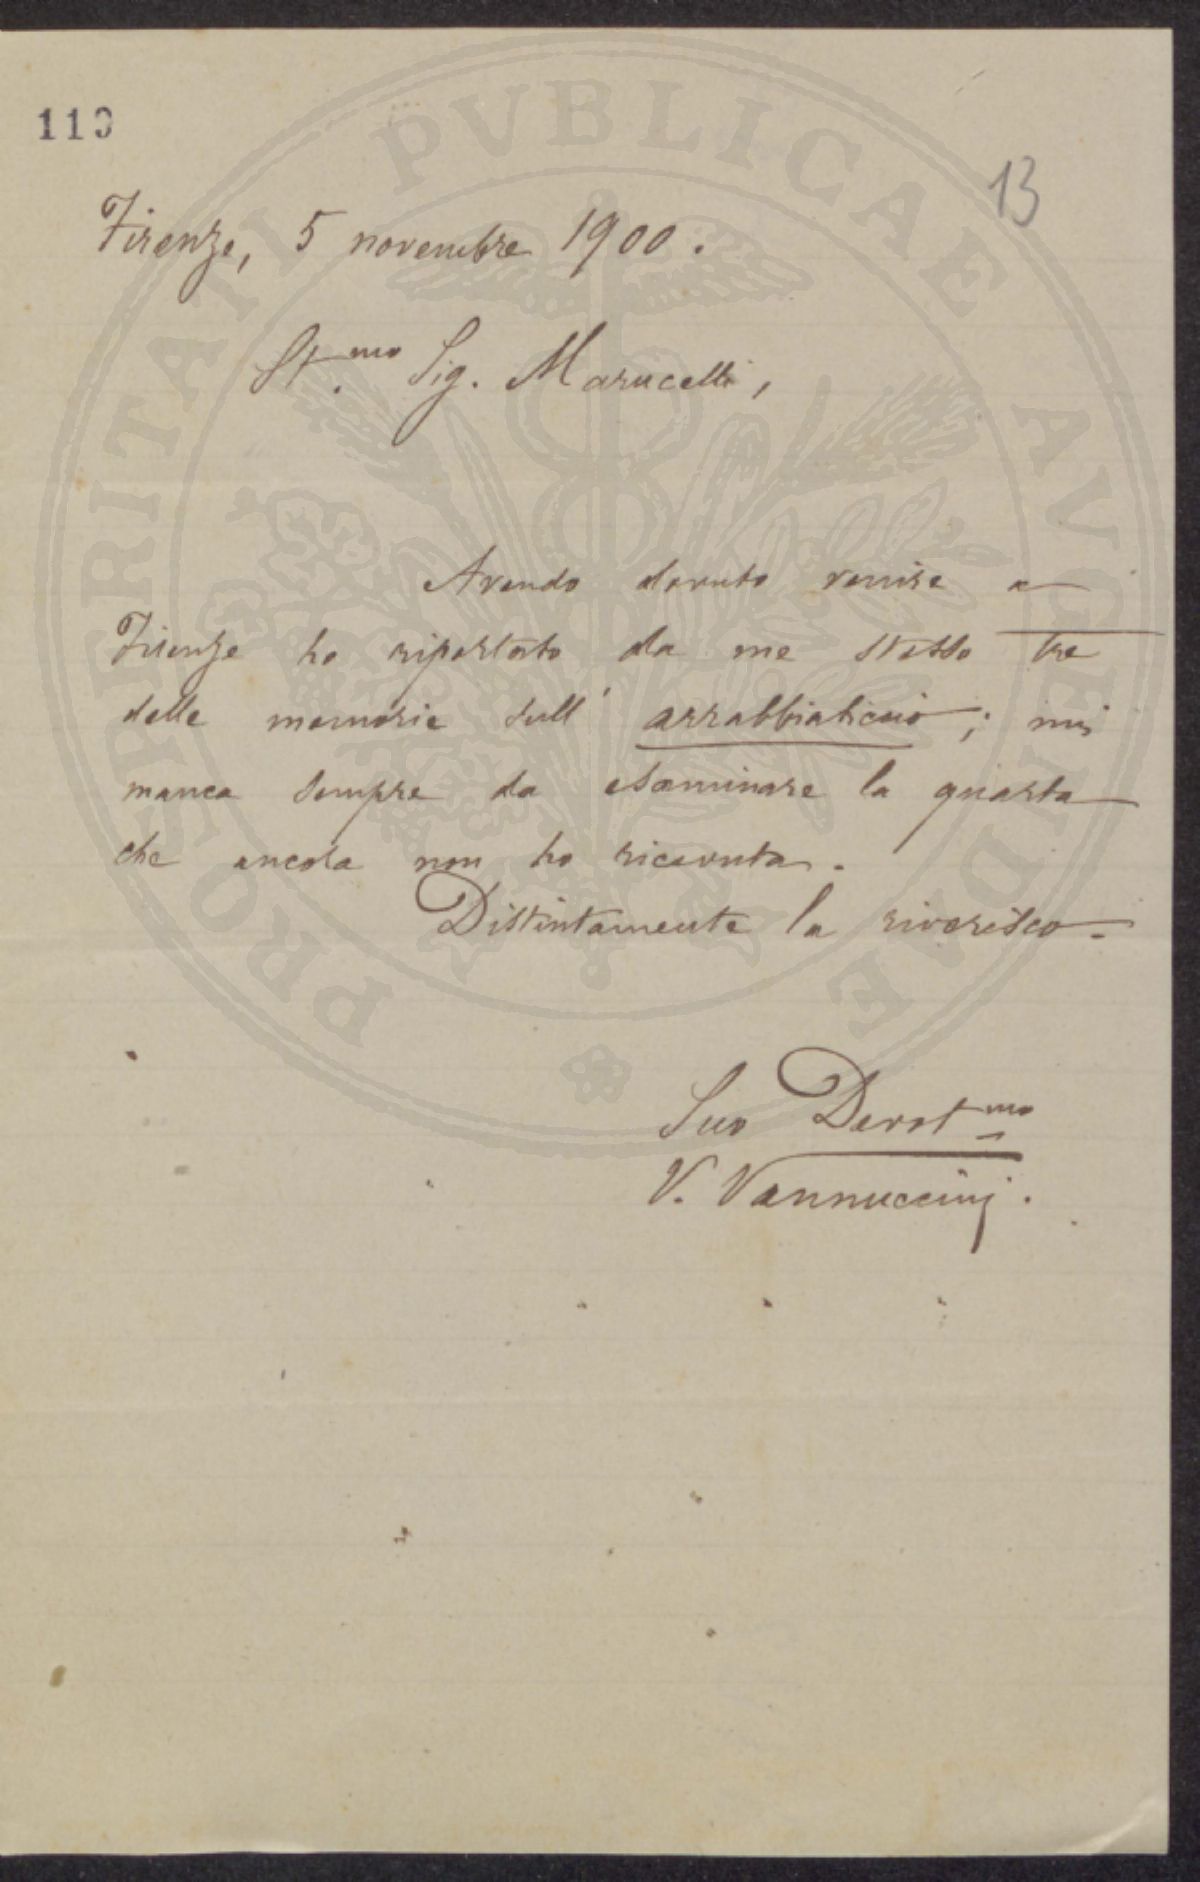 113
13
Firenze, 5 novembre 1900.
St.mo Sig. Marucelli,
Avendo dovuto venire a
Firenze ho riportato da me stesso tre
delle memorie sull' arrabbiaticcio; mi
manca sempre da esaminare la quarta
che ancora non ho ricevuta.
Distintamente la riverisco.
Suo Devot.mo
V. Vannuccini.
PROSPERITATI PVBLICAE AVGENDAE